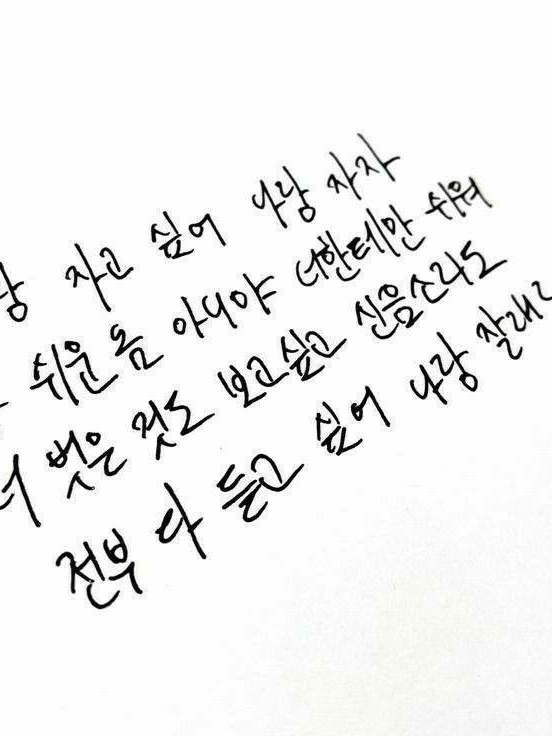 랑 자고 싶어 나랑 자자
쉬운 몸 아니야 너한테만 쉬워
너 벗은 것도 보고싶고 신음소리도
전부 다 듣고 싶어 나랑 잘래?